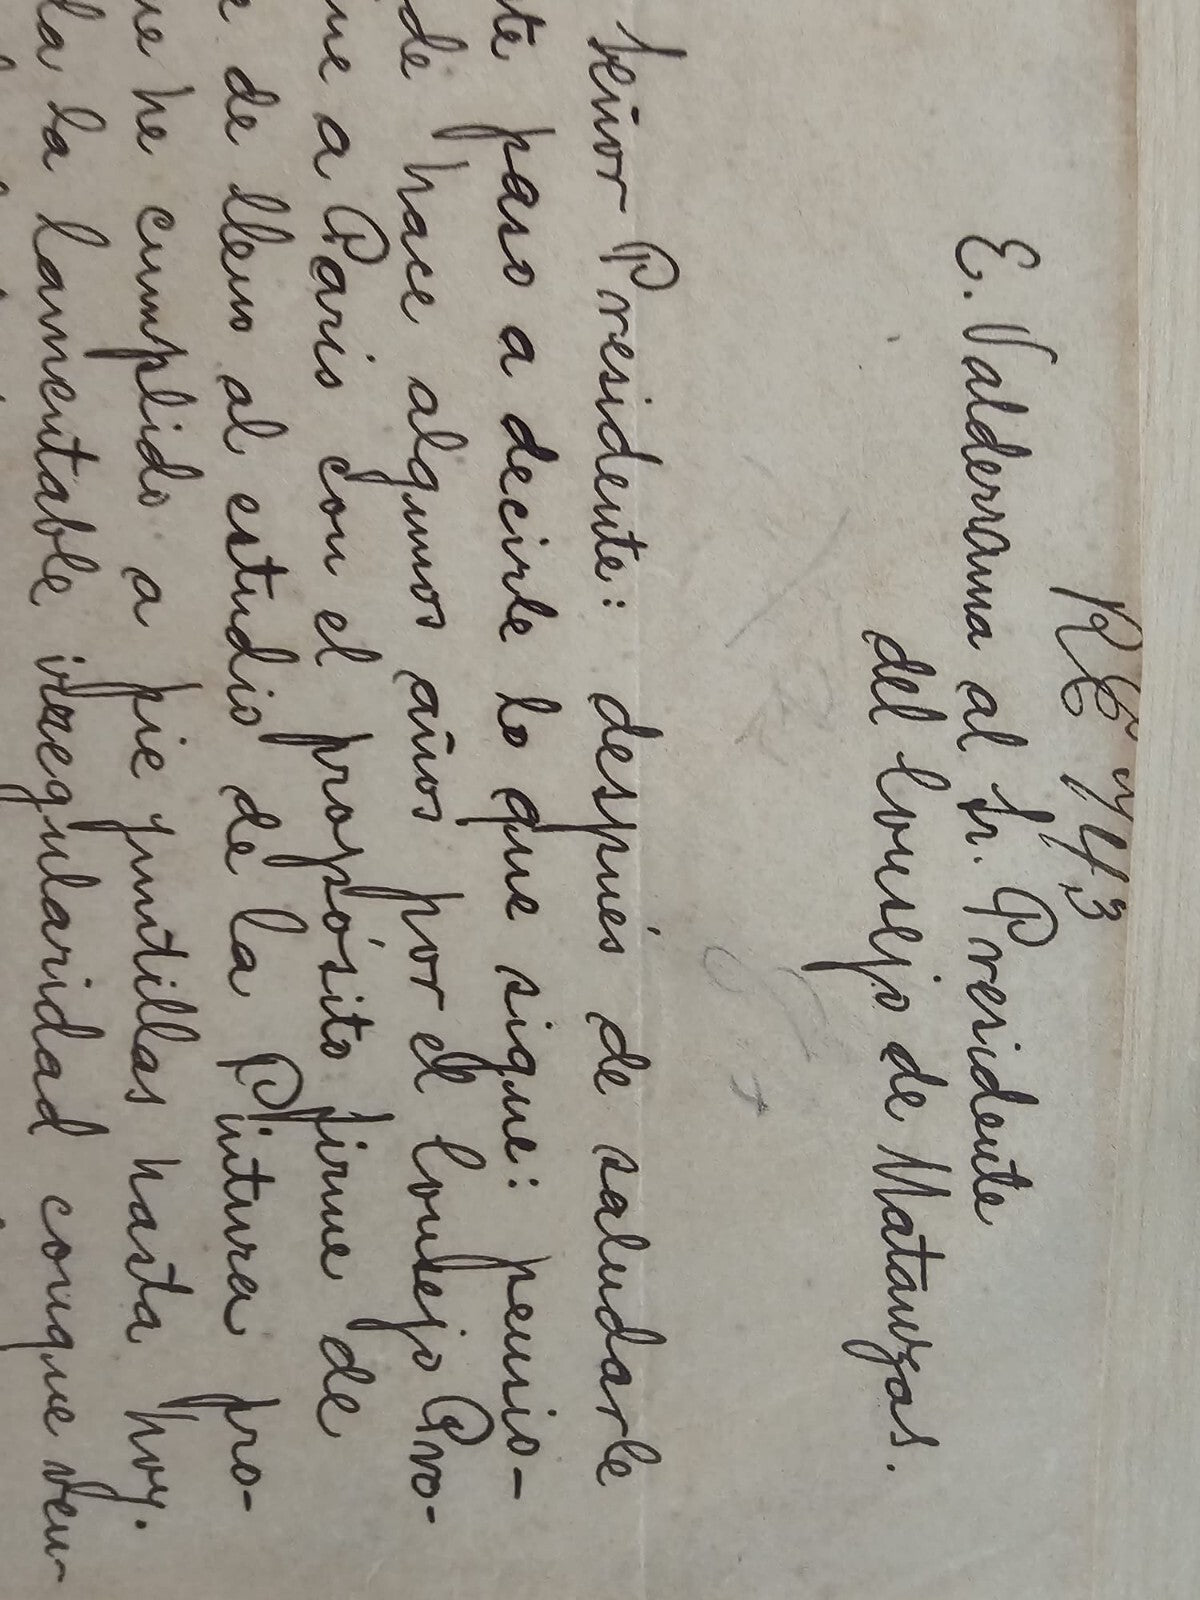 E. Valderrama al Sr. Presidente
del Consejo de Matanzas.
Señor Presidente: después de saludarle
te paso a decirle lo que sigue: pensio-
de hace algunos años por el Consejo Pro-
ne a Paris con el propósito firme de
e de lleno al estudio de la Pintura pro-
ue he cumplido a pie juntillas hasta hoy.
la la lamentable irregularidad conque ven-